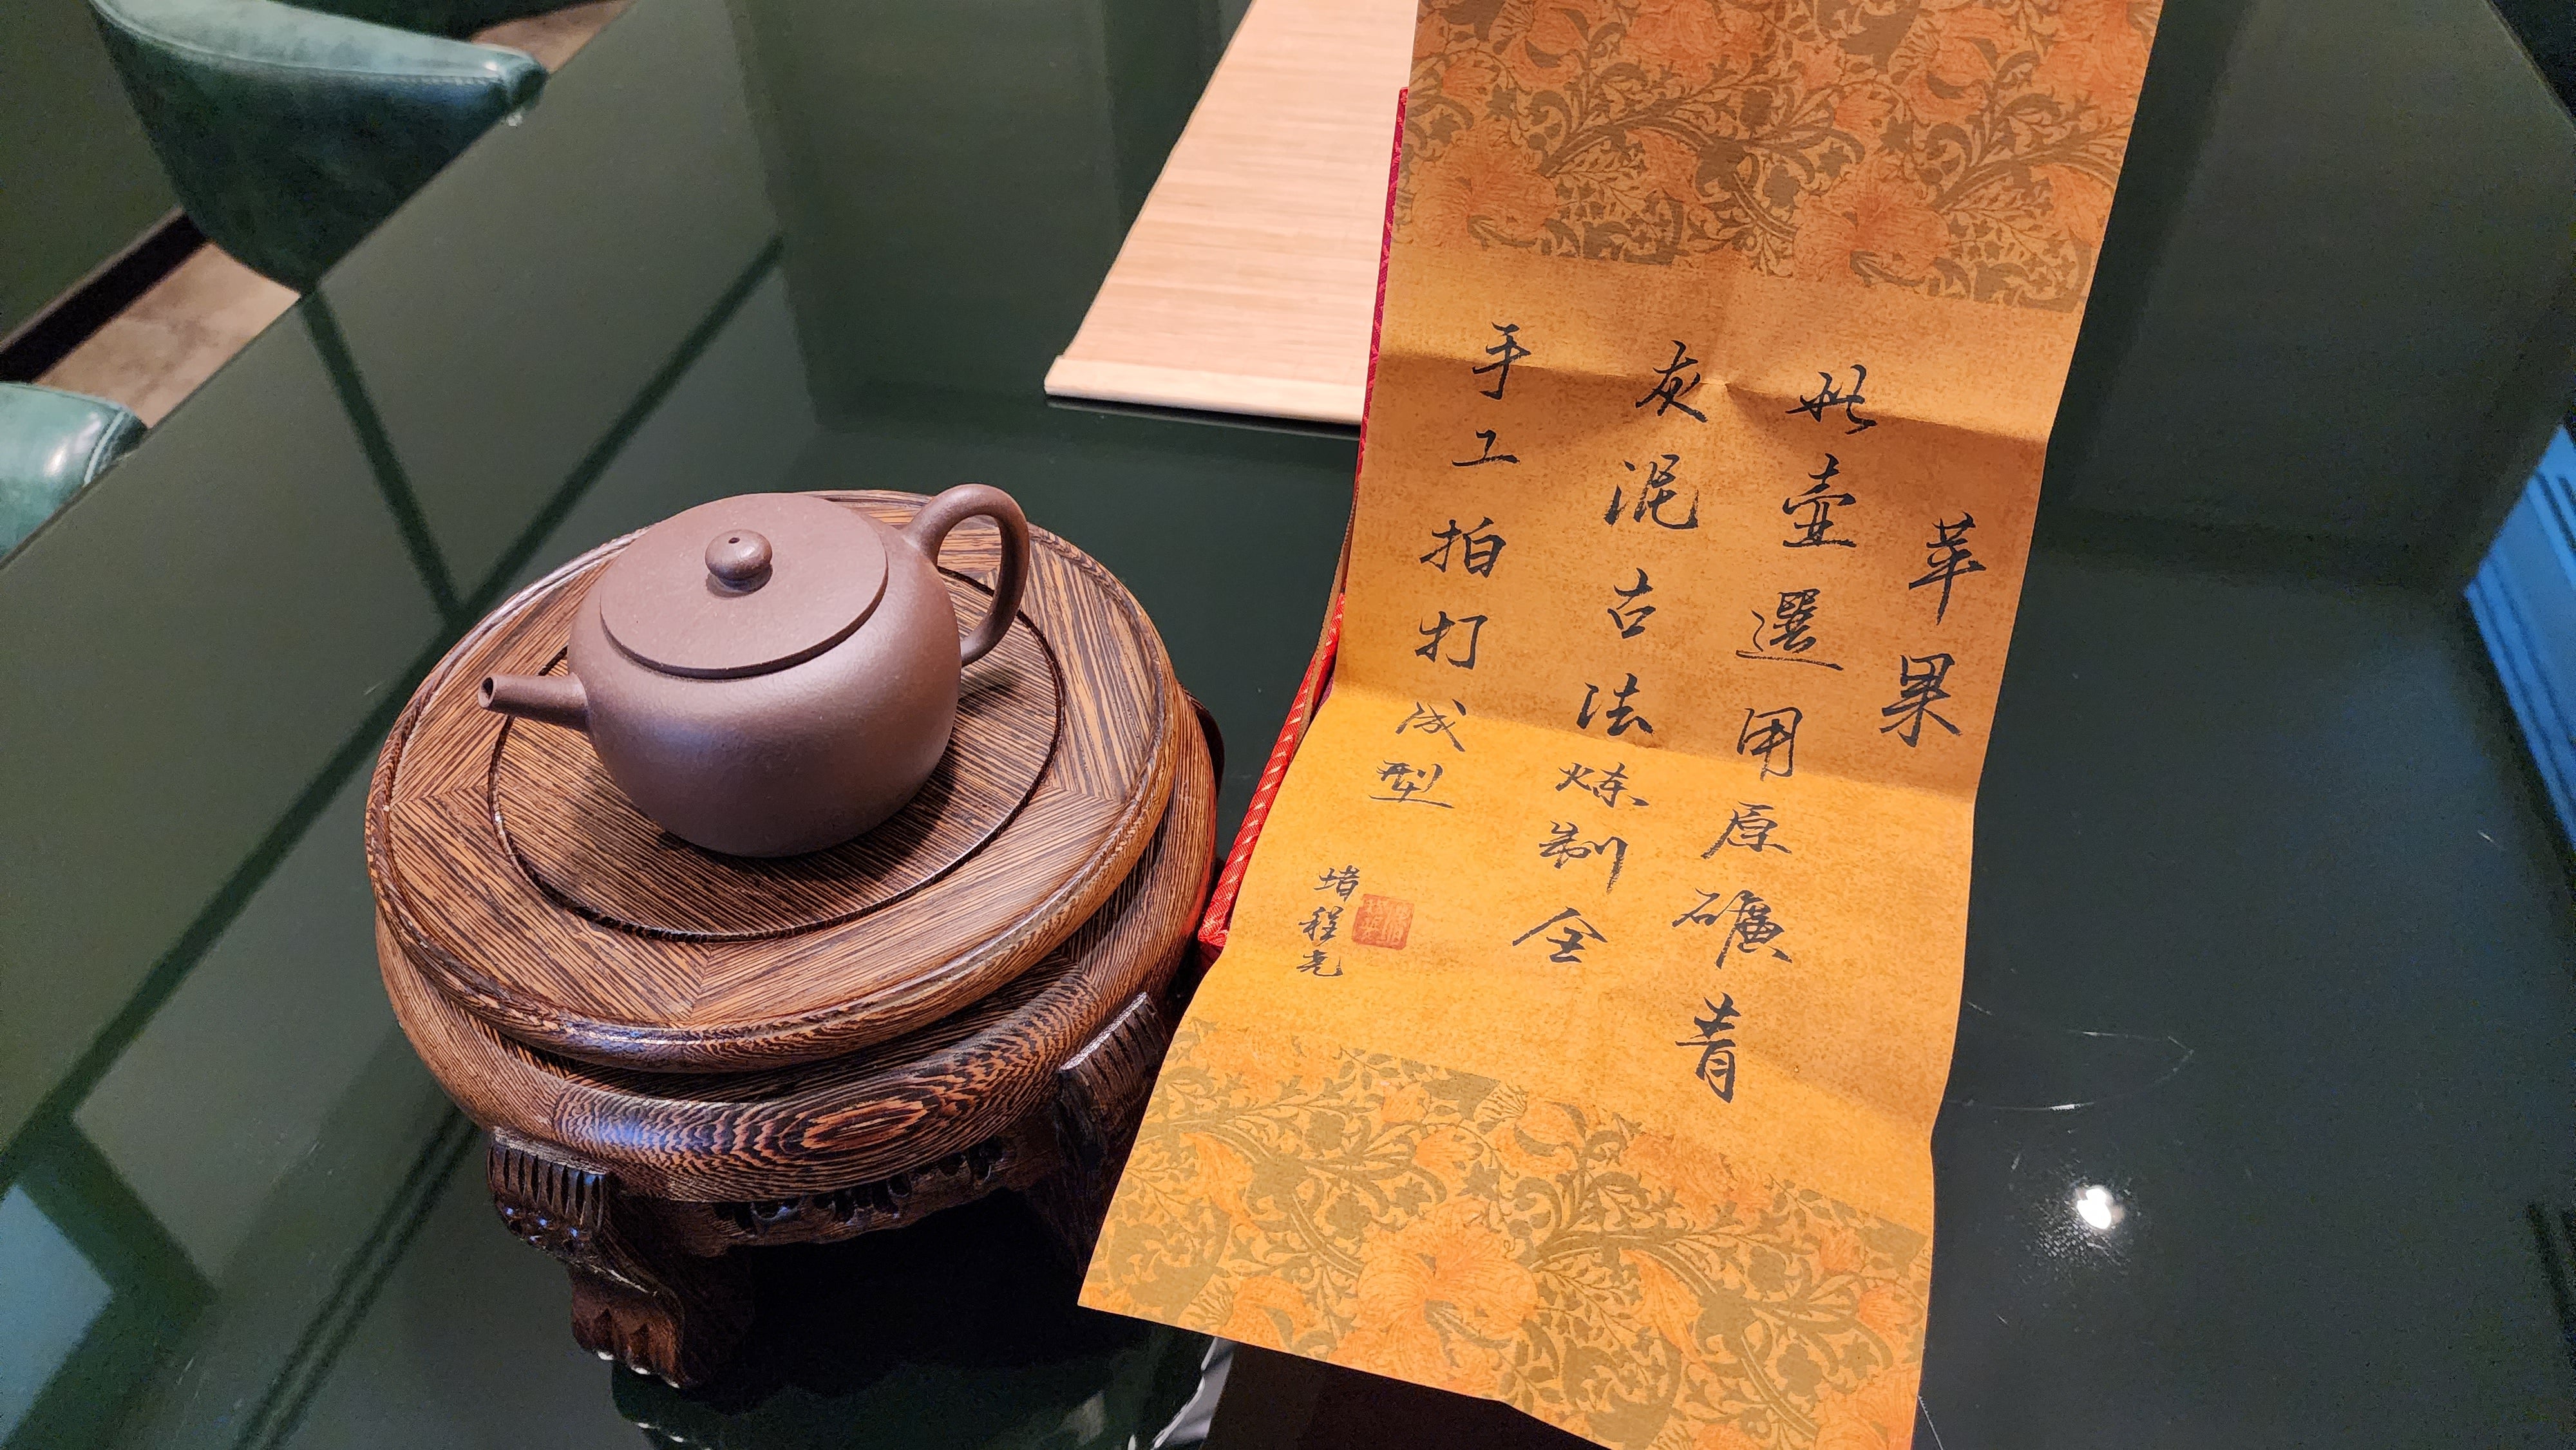 苹果
此壶選用原礦青
灰泥古法炼制全
手工拍打成型
程亮